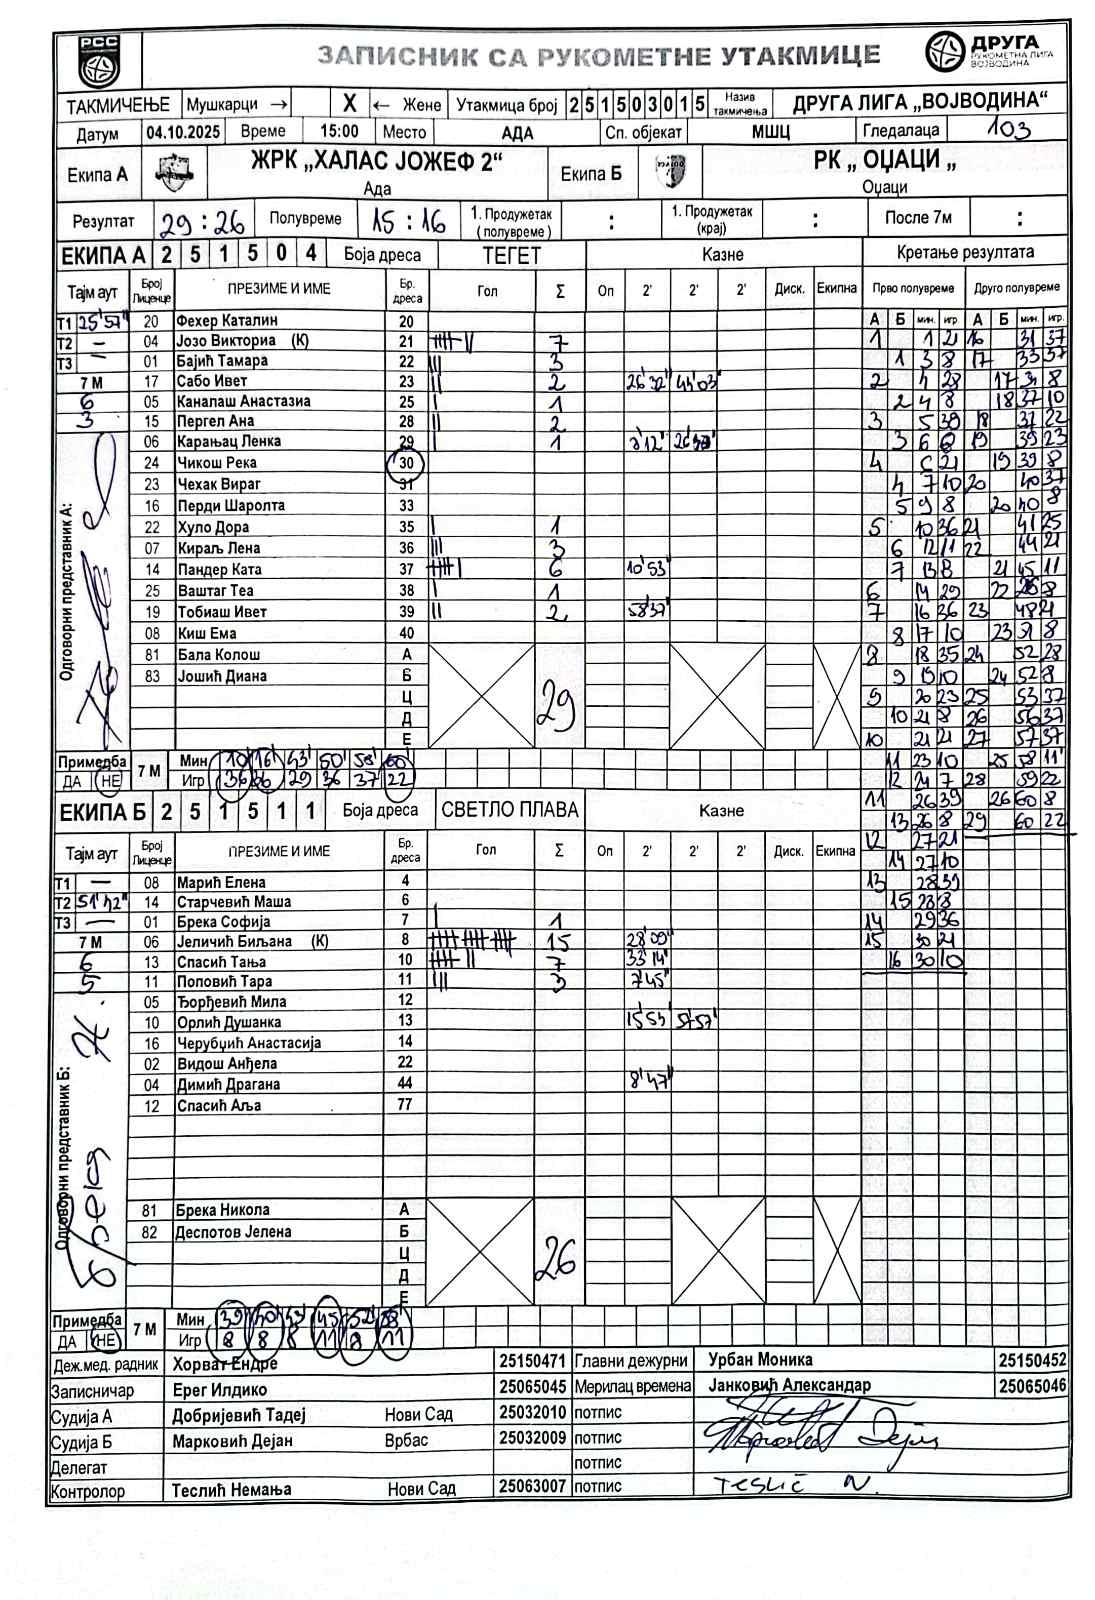 РСС
ЗАПИСНИК СА РУКОМЕТНЕ УТАКМИЦЕ
ДРУГА
РУКОМЕТНА ЛИГА
ВОЈВОДИНА
ТАКМИЧЕЊЕ Мушкарци → X ← Жене Утакмица број 2 5 1 5 0 3 0 1 5 Назив такмичења ДРУГА ЛИГА „ВОЈВОДИНА“
Датум 04.10.2025 Време 15:00 Место АДА Сп. објекат МШЦ Гледалаца 103
Екипа А ЖРК „ХАЛАС ЈОЖЕФ 2“ Ада Екипа Б РК „ ОЏАЦИ „ Оџаци
Резултат 29 : 26 Полувреме 15 : 16 1. Продужетак ( полувреме ) : 1. Продужетак (крај) : После 7м :
ЕКИПА А 2 5 1 5 0 4 Боја дреса ТЕГЕТ Казне Кретање резултата
Тајм аут Број Лиценце ПРЕЗИМЕ И ИМЕ Бр. дреса Гол Σ Оп 2' 2' 2' Диск. Екипна Прво полувреме Друго полувреме
А Б мин. игр А Б мин. игр.
Т1 25'57" 20 Фехер Каталин 20
Т2 – 04 Јозо Викториа (К) 21 7
Т3 – 01 Бајић Тамара 22 3
7 М 17 Сабо Ивет 23 2 26'32" 44'03"
6 05 Каналаш Анастазиа 25 1
3 15 Пергел Ана 28 2
06 Карањац Ленка 29 1
24 Чикош Река 30
23 Чехак Вираг 31
16 Перди Шаролта 33
22 Хуло Дора 35 1
07 Кираљ Лена 36 3
14 Пандер Ката 37 6 10'53"
25 Ваштаг Теа 38 1
19 Тобиаш Ивет 39 2 58'37"
08 Киш Ема 40
81 Бала Колош А
83 Јошић Диана Б
Ц
Д
Е
29
Одговорни представник А:
1 1 21 16 31 37
1 3 8 17 33 37
2 4 28 17 34 8
2 4 8 18 37 10
3 5 39 18 37 22
3 6 6 19 39 23
4 6 21 19 39 8
4 7 10 20 40 37
5 9 8 20 40 8
5 10 36 21 41 25
6 12 11 22 44 21
7 13 8 21 45 11
6 14 29 22 8
7 16 36 23 48 21
8 17 10 23 51 8
8 18 35 24 52 28
9 19 10 24 52 8
9 20 23 25 53 37
10 21 8 26 56 37
10 21 21 27 57 37
11 23 10 25 58 11
12 24 7 28 59 22
11 26 39 26 60 8
13 26 8 29 60 22
12 27 21
14 27 10
13 28 39
15 28 8
14 29 36
15 30 21
16 30 10
Примедба ДА НЕ 7 М Мин 10' 16' 43' 50' 58' 60'
Игр 36 36 29 36 37 22
ЕКИПА Б 2 5 1 5 1 1 Боја дреса СВЕТЛО ПЛАВА Казне
Тајм аут Број Лиценце ПРЕЗИМЕ И ИМЕ Бр. дреса Гол Σ Оп 2' 2' 2' Диск. Екипна
Т1 – 08 Марић Елена 4
Т2 51'42" 14 Старчевић Маша 6
Т3 – 01 Брека Софија 7 1
7 М 06 Јеличић Биљана (К) 8 15 28'09"
6 13 Спасић Тања 10 7 33'14"
5 11 Поповић Тара 11 3 7'45"
05 Ђорђевић Мила 12
10 Орлић Душанка 13 15'53" 57'57"
16 Черубџић Анастасија 14
02 Видош Анђела 22
04 Димић Драгана 44 8'47"
12 Спасић Аља 77
81 Брека Никола А
82 Деспотов Јелена Б
Ц
Д
Е
26
Одговорни представник Б:
Примедба ДА НЕ 7 М Мин 39' 40' 43' 45' 52' 58'
Игр 8 8 8 11 8 11
Деж.мед. радник Хорват Ендре 25150471 Главни дежурни Урбан Моника 25150452
Записничар Ерег Илдико 25065045 Мерилац времена Јанковић Александар 25065046
Судија А Добријевић Тадеј Нови Сад 25032010 потпис
Судија Б Марковић Дејан Врбас 25032009 потпис
Делегат потпис
Контролор Теслић Немања Нови Сад 25063007 потпис Teslić N.